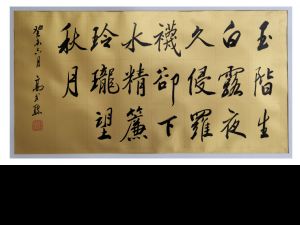 玉階生
白露夜
久侵羅
襪卻下
水精簾
玲瓏望
秋月
癸未六月 高